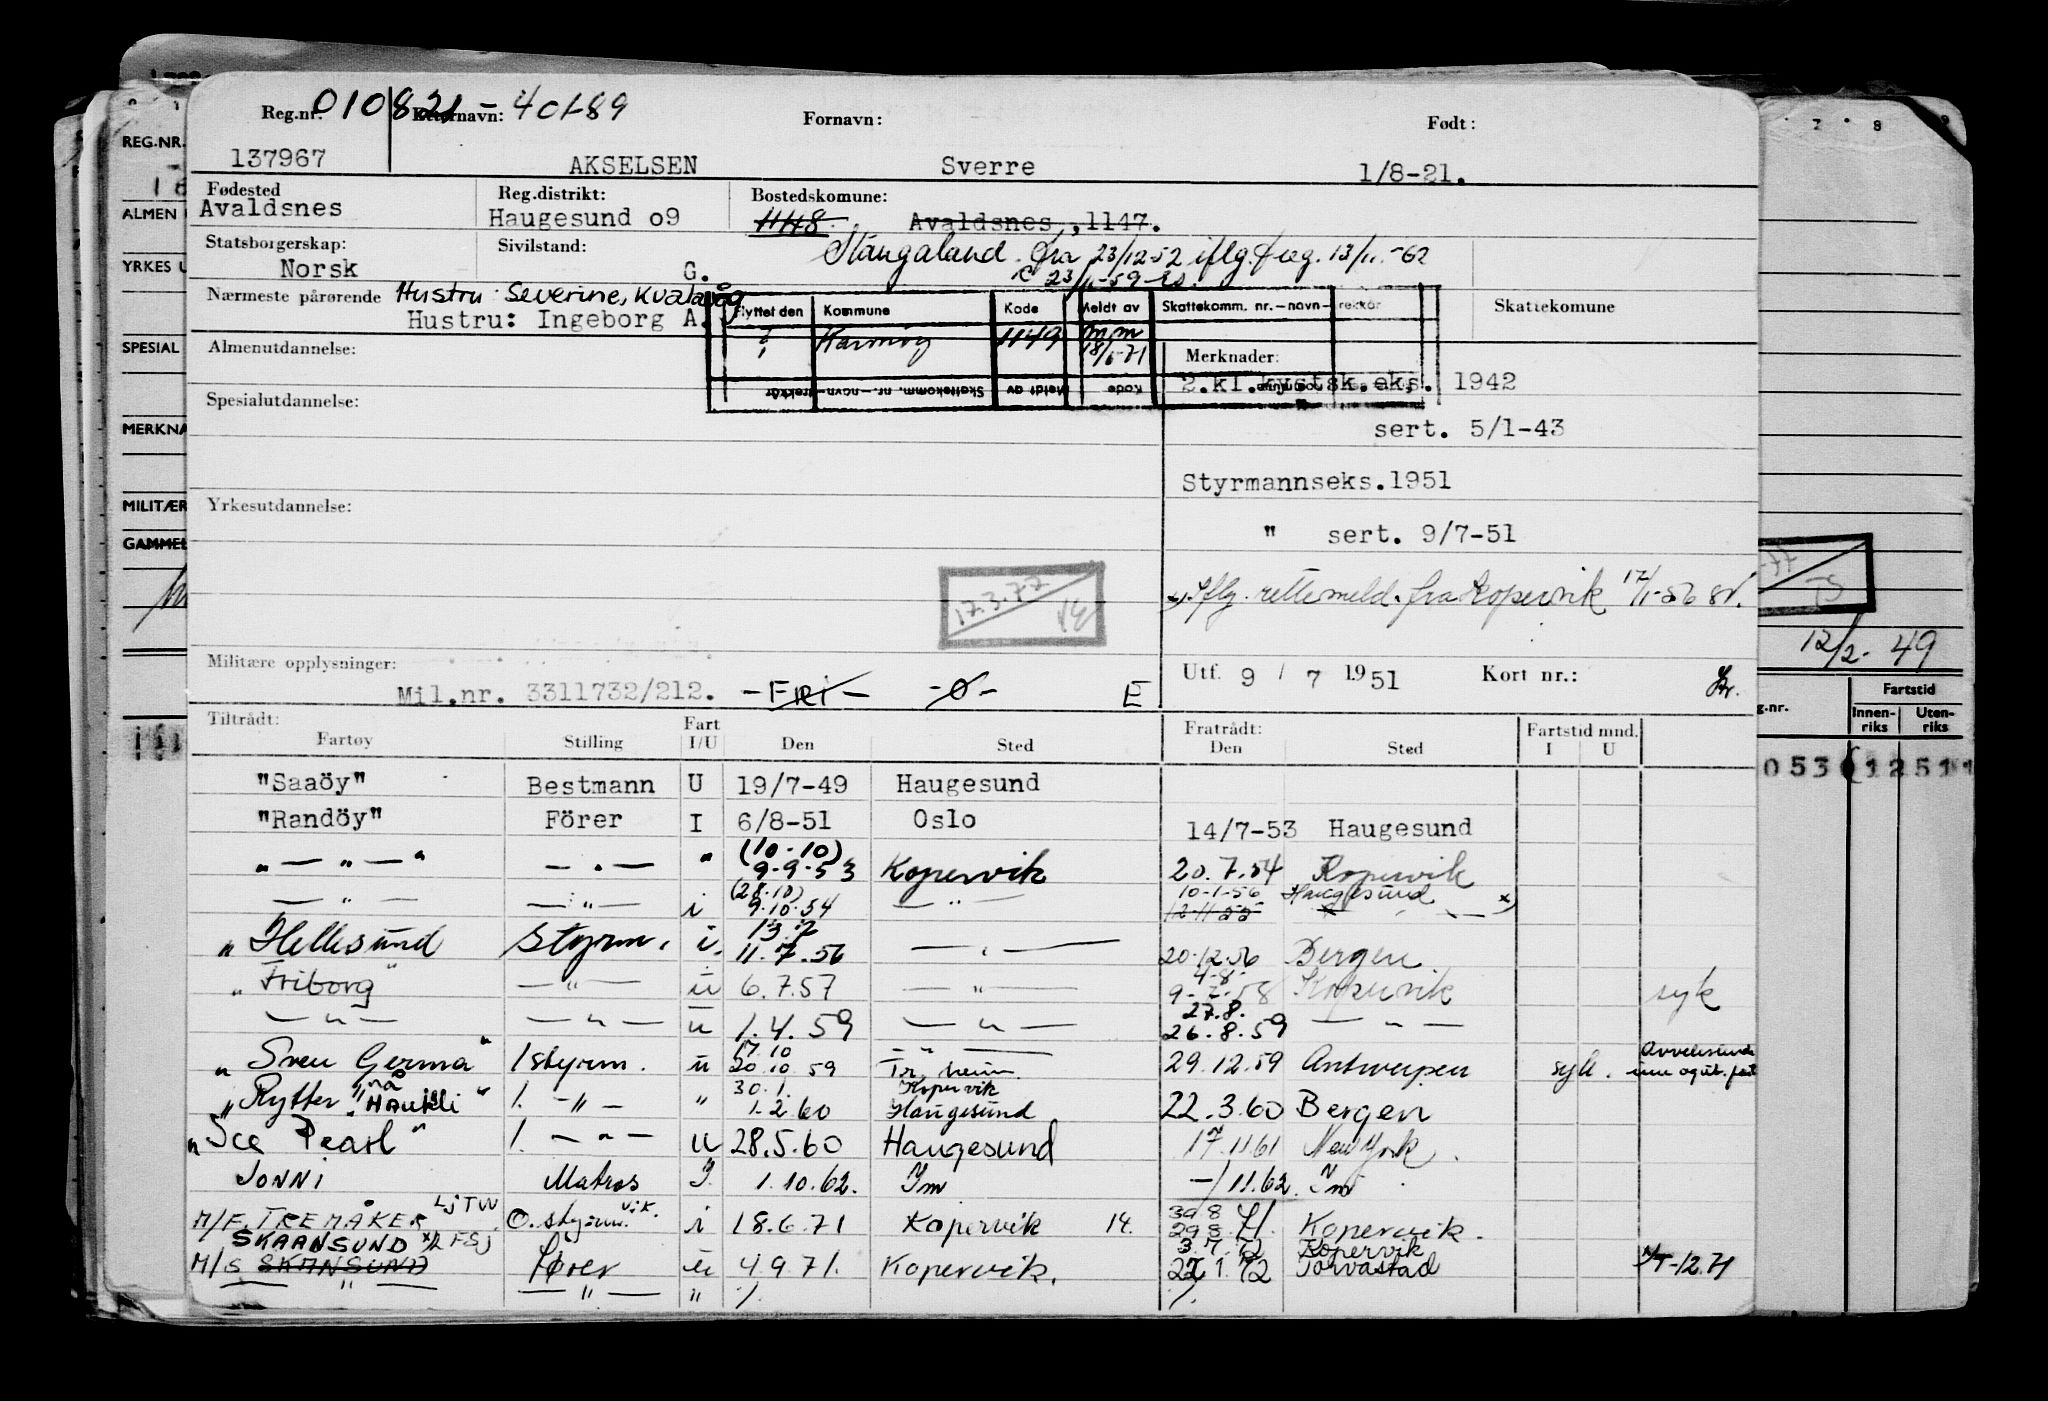 Reg.nr. 010821-40189 Etternavn: Fornavn: Født:
137967 AKSELSEN Sverre 1/8-21.
Fødested Reg.distrikt: Bostedskomune:
Avaldsnes Haugesund o9 1148 Avaldsnes, 1147.
Statsborgerskap: Sivilstand: Stangaland fra 23/12-52 iflg. 13/11-62
Norsk G. 23/11-59
Nærmeste pårørende Hustru Severine, Kvalavåg
Hustru: Ingeborg A.
Flyttet den Kommune Kode Meldt av Skattekomm. nr.-navn-rekkår Skattekomune
Karmøy 1149 mm 18/5-71
Almenutdannelse: Merknader:
2.kl.kystsk.eks. 1942
Spesialutdannelse:
sert. 5/1-43
Styrmannseks.1951
Yrkesutdannelse:
" sert. 9/7-51
x) Iflg. rettemeld. fra Kopervik 17/1-56
17.3.77
Militære opplysninger: Utf. 9 / 7 1951 Kort nr.:
Mil.nr. 3311732/212. -FRI- -0- E
Tiltrådt: Fart Fratrådt: Fartstid mnd.
Fartøy Stilling I/U Den Sted Den Sted I U
"Saaöy" Bestmann U 19/7-49 Haugesund
"Randöy" Förer I 6/8-51 Oslo 14/7-53 Haugesund
"—"—" —"— " (10-10) 9-9-53 Kopervik 20.7.54 Kopervik
—"— —"— i (28.10) 9.10.54 —"— 10-1-56 Haugesund x)
12-11-55
"Hellesund Styrm. i. 13.7 11.7.56 —"— 20.12.56 Bergen
"Friborg" —"— u 6.7.57 —"— 4-8- 9-7-58 Kopervik syk
—"— —"— u 1.4.59 —"— 27.8. 26.8.59 —"—
"Sven Germa" 1 styrm. u 17.10 20.10.59 Tr.heim 29.12.59 Antwerpen syk.
"Rytter" nå "Haukli" 1. —"— " 30.1. 1.2.60 Kopervik Haugesund 22.3.60 Bergen
"Ice Pearl" 1. —"— u 28.5.60 Haugesund 17.11.61 New York.
JONNI Matros I. 1.10.62. Im —/11.62. Im
M/F. TREMÅKER LJTW O. styrm. vik. i 18.6.71 Kopervik 14. 29.8.71. Kopervik.
SKAANSUND LFSJ 3.7.72 Kopervik
M/S SKANSUND Fører u 4.9.71. Kopervik. 22.1.72 Torvastad
—"— —"— "
REG.NR.
ALMEN
YRKES
SPESIAL
MERKNA
MILITÆR
GAMMEL
12/2-49
g.nr. Fartstid
Innenriks Utenriks